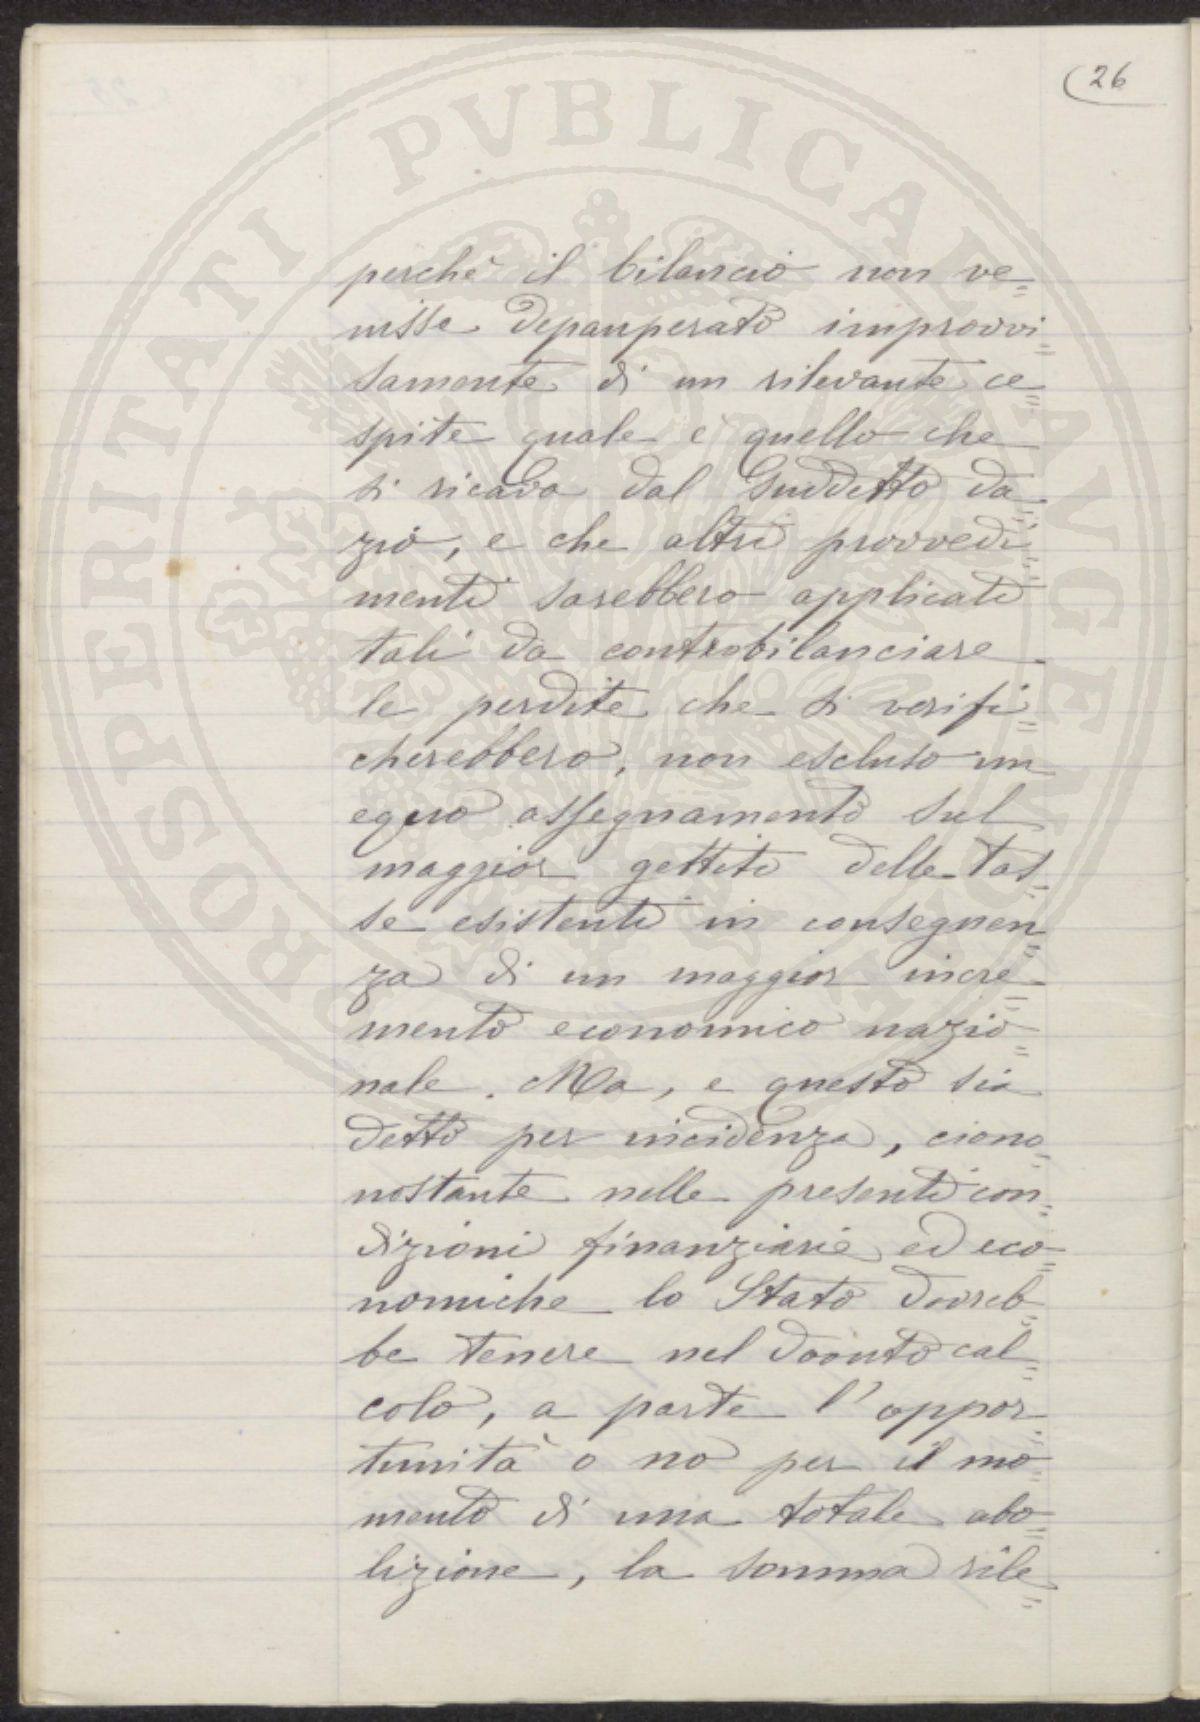 26
perchè il bilancio non ve=
nisse depauperato improvvi=
samente di un rilevante ce=
spite quale è quello che
si ricava dal suddetto da=
zio, e che altri provvedi=
menti sarebbero applicati
tali da controbilanciare
le perdite che si verifi=
cherebbero, non escluso un
equo assegnamento sul
maggior gettito delle tas=
se esistenti in conseguen=
za di un maggior incre=
mento economico nazio=
nale. Ma, e questo sia
detto per incidenza, ciono=
nostante nelle presenti con=
dizioni finanziarie ed eco=
nomiche lo Stato dovreb=
be tenere nel dovuto cal=
colo, a parte l'oppor=
tunità o no per il mo=
mento di una totale abo=
lizione, la somma rile=
PROSPERITATI PVBLICAE AVGENDAE